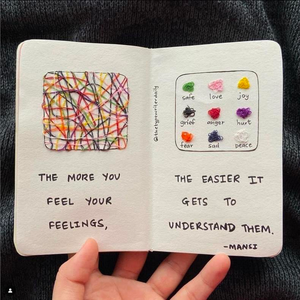 THE MORE YOU
FEEL YOUR
FEELINGS,
safe love joy
grief anger hurt
fear sad peace
THE EASIER IT
GETS TO
UNDERSTAND THEM.
-MANSI